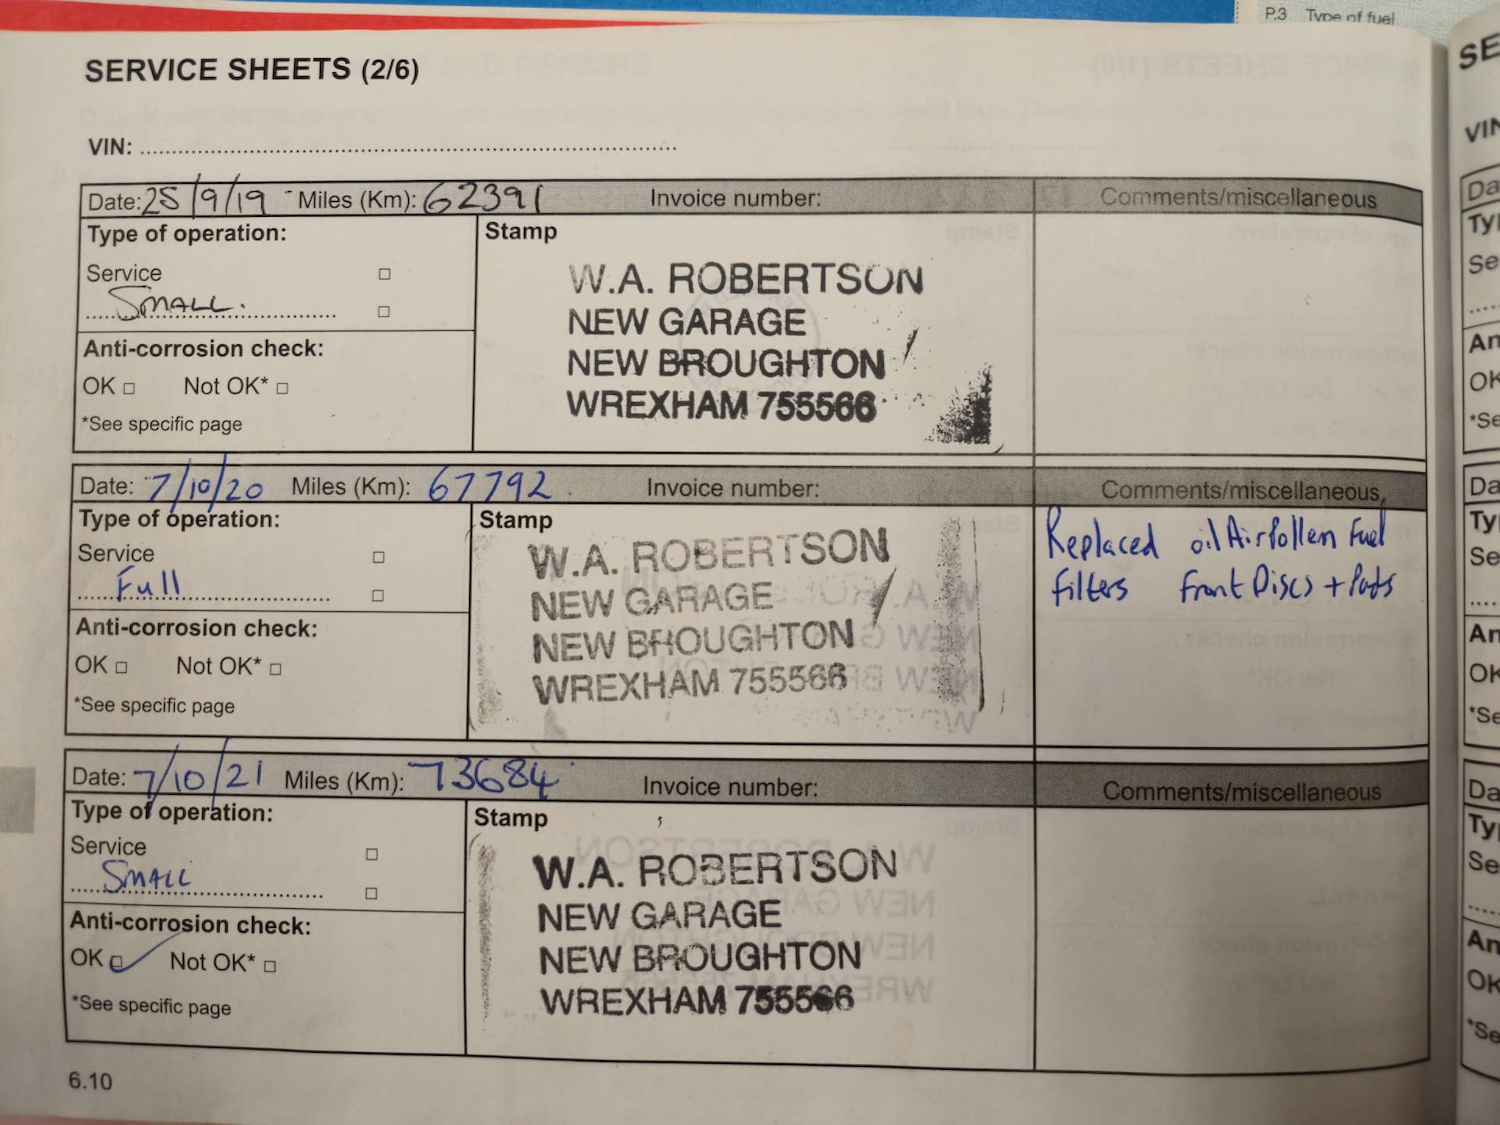 P.3 Type of fuel
SERVICE SHEETS (2/6)
VIN:
Date: 25/9/19 Miles (Km): 62391 Invoice number: Comments/miscellaneous
Type of operation:
Stamp
Service
SMALL.
Anti-corrosion check:
OK Not OK*
*See specific page
W.A. ROBERTSON
NEW GARAGE
NEW BROUGHTON
WREXHAM 755566
Date: 7/10/20 Miles (Km): 67792 Invoice number: Comments/miscellaneous
Type of operation:
Stamp
Service
Full
Anti-corrosion check:
OK Not OK*
*See specific page
W.A. ROBERTSON
NEW GARAGE
NEW BROUGHTON
WREXHAM 755566
Replaced oil Air Pollen Fuel
filters Front Discs + Pads
Date: 7/10/21 Miles (Km): 73684 Invoice number: Comments/miscellaneous
Type of operation:
Stamp
Service
SMALL
Anti-corrosion check:
OK Not OK*
*See specific page
W.A. ROBERTSON
NEW GARAGE
NEW BROUGHTON
WREXHAM 755566
6.10